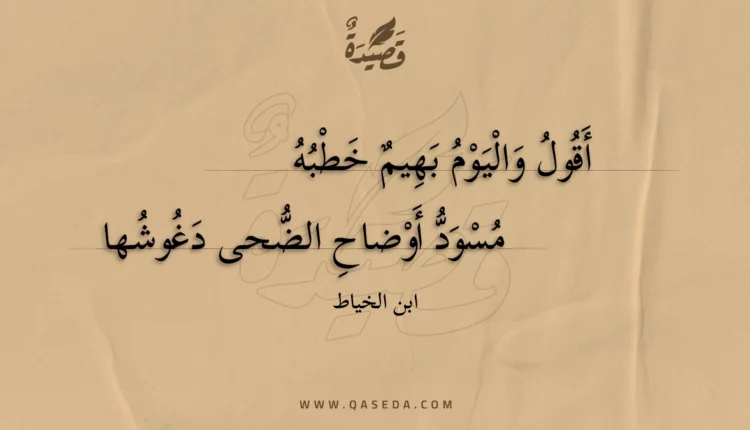 قَصِيدَةٌ
أَقُولُ وَالْيَوْمُ بَهِيمٌ خَطْبُهُ
مُسْوَدُّ أَوْضاحِ الضُّحى دَغُوشُها
ابن الخياط
WWW.QASEDA.COM